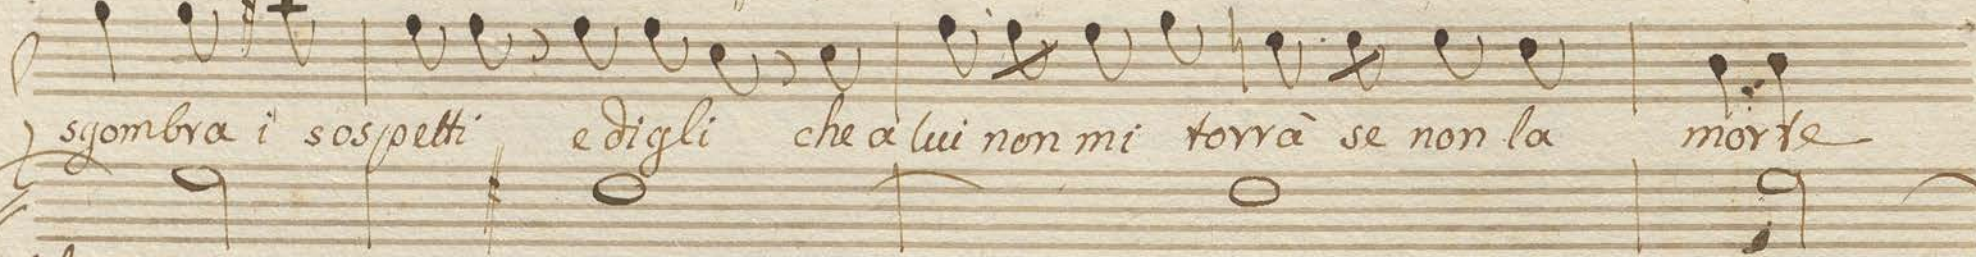 sgombra i sospetti e digli che a lui non mi torrà se non la morte